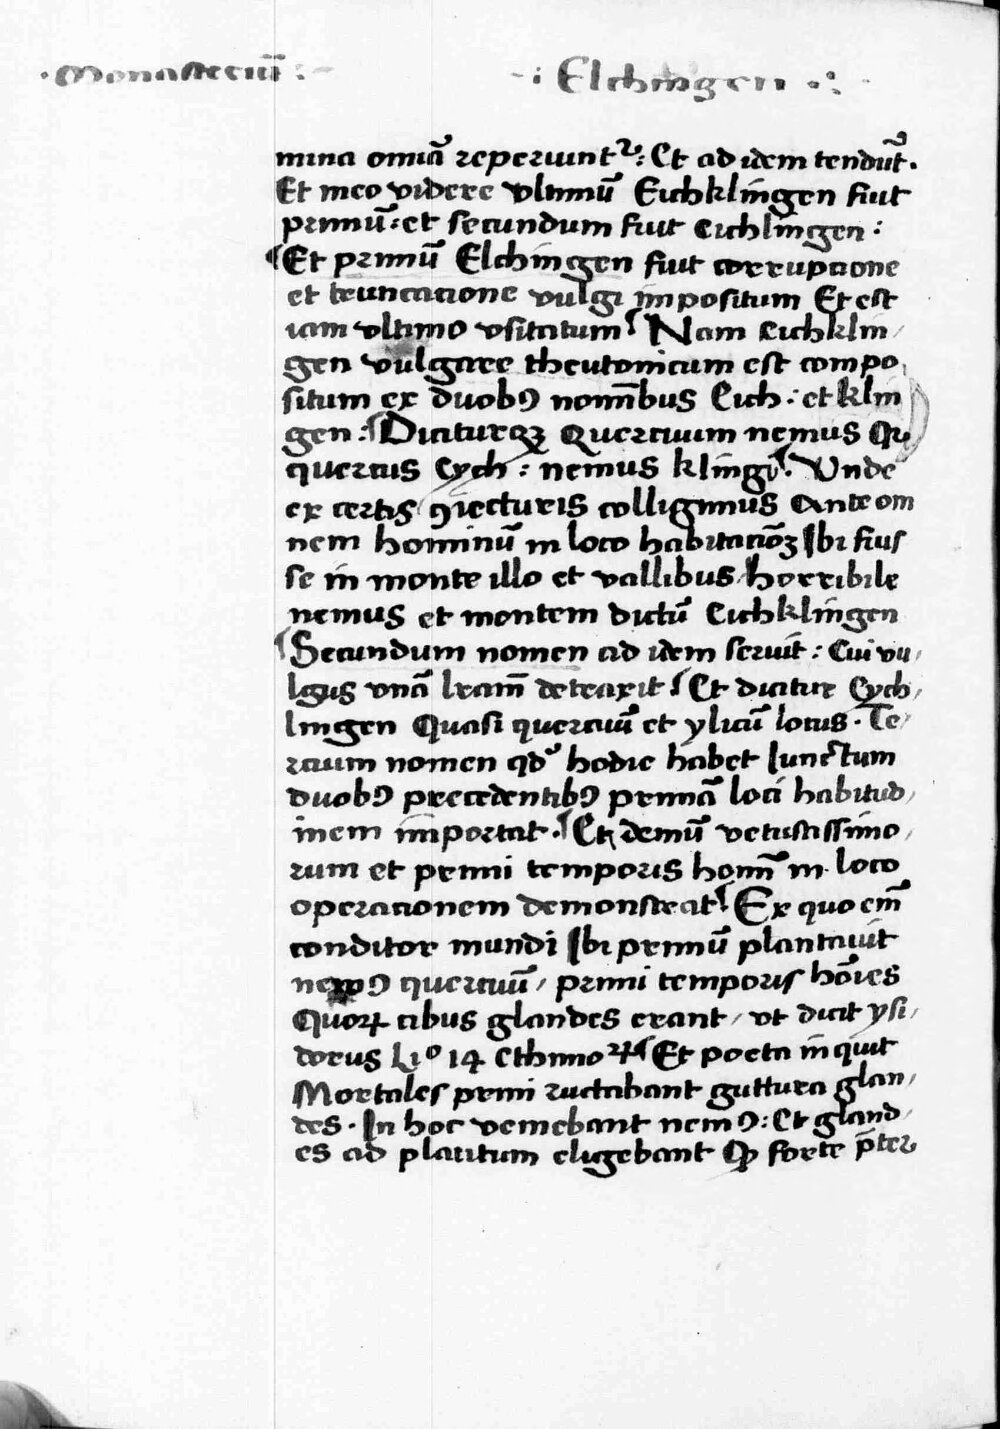 · Monasteriū : –
– : Elchingen · :
mina omīa reperiuntᷣ : Et ad idem tendūt .
Et meo videre vltimū Eichklingen fuit
primū : et secundum fuit Eichlingen :
¶ Et primū Elchingen fuit corrupcione
et truncacione vulgi impositum Et est
iam vltimo vsitatum ¶ Nam Eichklin/
gen vulgare theutonicum est compo/
situm ex duobꝰ nomībus Eich : et klin
gen : ¶ Diciturqꝫ Quercuum nemus
quercus Eych : nemus klingē ¶ Vnde
ex certis ꝯiecturis colligimus Ante om
nem hominū in loco habitacioꝫ Ibi fuis
se in monte illo et vallibus horribile
nemus et montem dictū Eichklingen
¶ Secundum nomen ad idem seruit : Cui vu/
lgus vnā lrām detraxit ¶ Et dicitur Eych/
lingen Quasi quercuū et ylicū locus . Te/
rcium nomen qd' hodie habet Iunctum
duobꝰ precedentibꝰ primā loci habitud/
inem importat . ¶ Et demū vetustissimo/
rum et primi temporis homī in loco
operacionem demonstrat ¶ Ex quo enī
conditor mundi Ibi primū plantauit
quercuū / primi temporis hoīes
Quoꝝ cibus glandes erant / vt dicit ysi/
dorus Liº 14 Ethimoꝝ ¶ Et poeta inquit
Mortales primi ructabant guttura glan/
des . In hoc veniebant nemꝰ : Et gland/
es ad placitum eligebant Qꝫ forte p̄ter